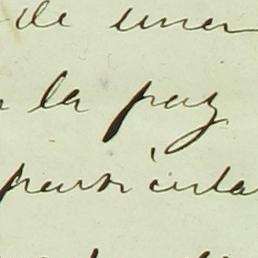 de una
la paz
particula